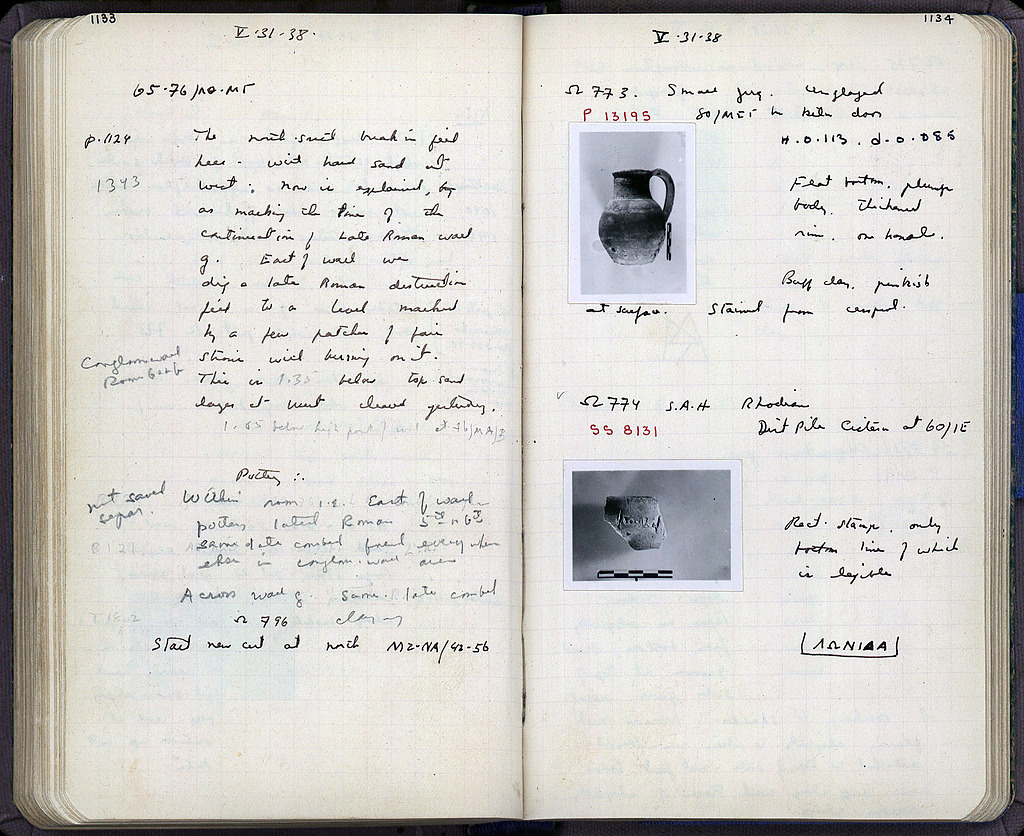 1133
V·31·38·
65-76/
p. 1124
1343
The north-south break in
here - with hard sand at
west; now is explained,
as marking the line of the
continuation of Late Roman wall
g. East of wall we
dig a late Roman destruction
fill to a level marked
by a few patches of
stone with burning on it.
This is 1.35 below top sand
layer at west cleared yesterday.
1.05 below high part of wall at
Pottery:
not saved
separ.
Within room i.e. East of wall
pottery Roman 5th 6th
same date combed found everywhere
else in conglom. wall area
Across wall g. same late combed
Ω 796
Start new cut at north ΜΖ-ΝΑ/43-56
1134
V·31·38
Ω 773. Small jug. Unglazed
P 13195
H. 0.113. d. 0.088
Flat bottom, plump
body. Thickened
rim. one handle.
Buff clay, pinkish
at surface. Stained from cesspool.
Ω 774 S.A.H Rhodian
SS 8131
Dirt Pile Cistern at 60/ΙΕ
Rect. stamp, only
bottom line of which
is legible
ΛΩΝΙΔΑ